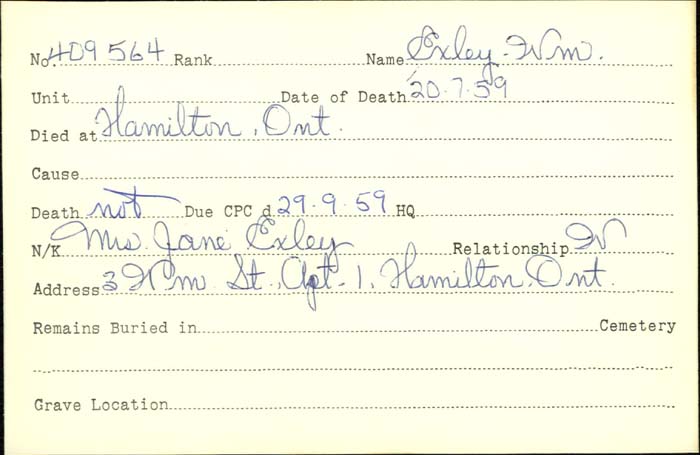 No. 409564 Rank Name Exley - Wm.
Unit Date of Death 20.7.59
Died at Hamilton, Ont.
Cause
Death not Due CPC d 29.9.59 HQ
N/K Mrs. Jane Exley Relationship W
Address 3 Wm St., Apt. 1, Hamilton, Ont.
Remains Buried in Cemetery
Grave Location